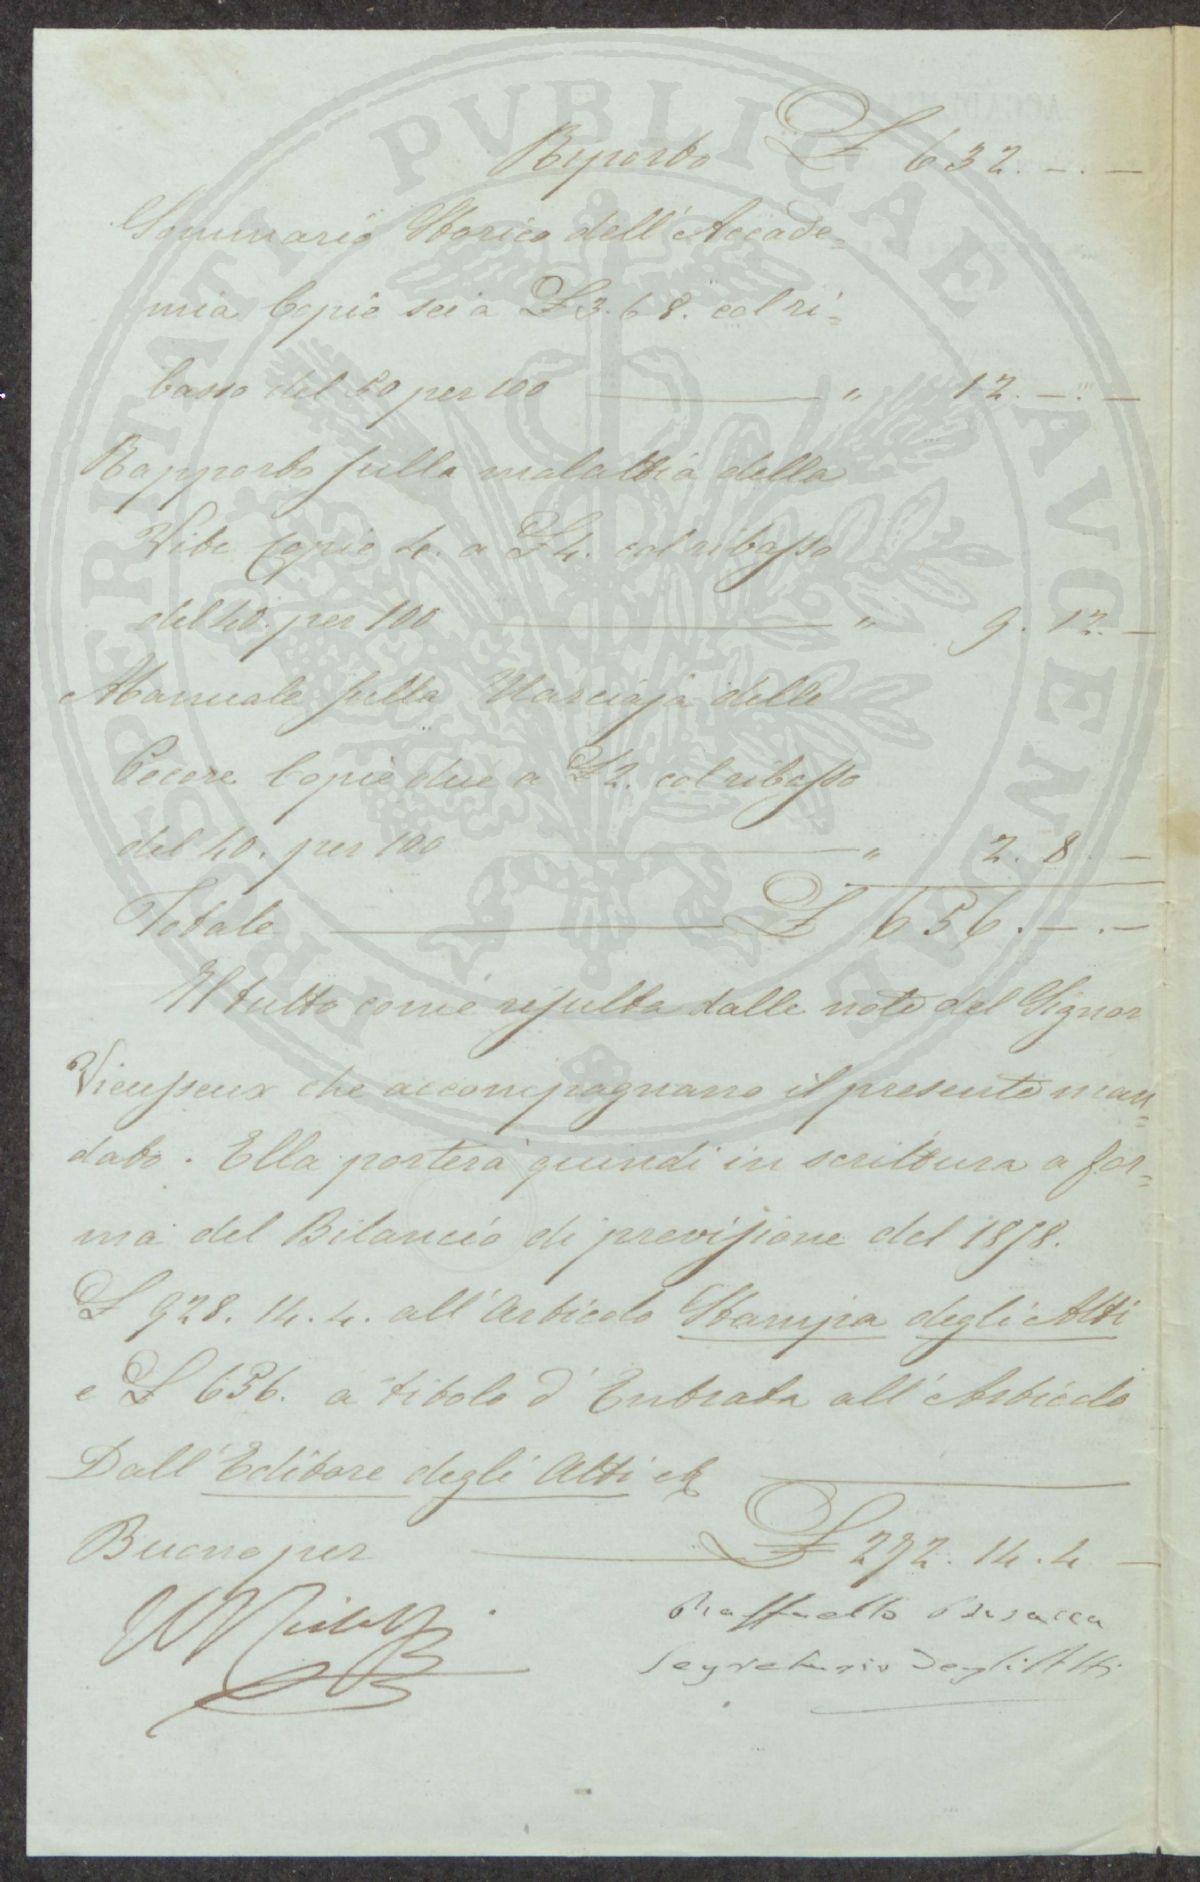 PROSPERITATI PVBLICAE AVGENDAE
Riporto £ 632. _ . _
Sommario Storico dell'Accade=
mia Copie sei a £ 3. 6 8. col ri=
basso del 40 per 100 " 12. _ . _
Rapporto sulla malattia della
Vite Copie 4. a £ 4. col ribasso
del 40. per 100 " 9. 12. _
Manuale sulla Marciaja delle
Pecore Copie due a £ 2. col ribasso
del 40. per 100 " 2. 8. _
Totale £ 656. _ . _
Il tutto come risulta dalle note del Signor
Vieusseux che accompagnano il presente man=
dato. Ella porterà quindi in scrittura a for=
ma del Bilancio di previsione del 1858.
£ 928. 14. 4. all'Articolo Stampa degli Atti
e £ 656. a titolo d'Entrata all'Articolo
Dall'Editore degli Atti
Buono per £ 272. 14. 4. _
Raffaello Busacca
Segretario Degli Atti